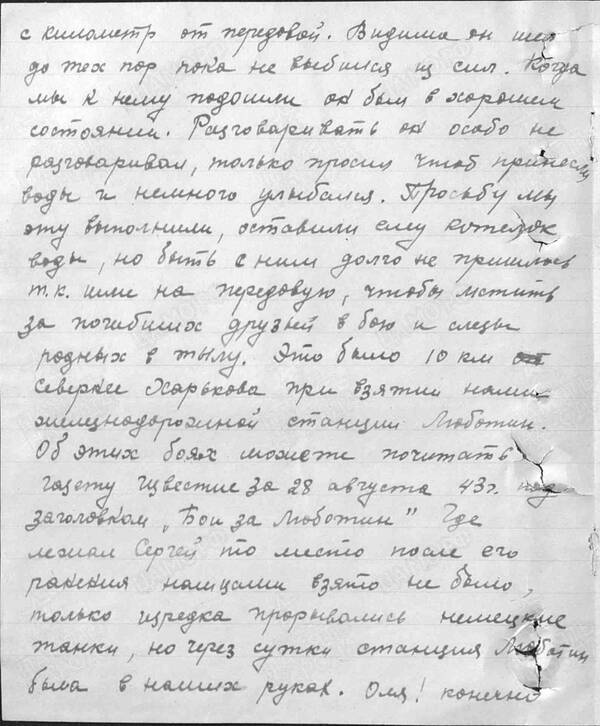 с километр от передовой. Видима он шел
до тех пор пока не выбился из сил. Когда
мы к нему подошли он был в хорошем
состоянии. Разговаривать он особо не
разговаривал, только просил чтоб принесли
воды и немного улыбался. Просьбу мы
эту выполнили, оставили ему котелок
воды, но быть с ним долго не пришлось
т.к. шли на передовую, чтобы мстить
за погибших друзей в бою и слезы
родных в тылу. Это было 10 км от
Севернее Харькова при взятии нами
железнодорожной станции Люботин.
Об этих боях можете почитать
газету Известие за 28 августа 43г. под
заголовком „Бои за Люботин" Где
лежал Сергей то место после его
ранения немцами взято не было,
только изредка прорывались немецкие
танки, но через сутки станция Люботин
была в наших руках. Оля! конечно